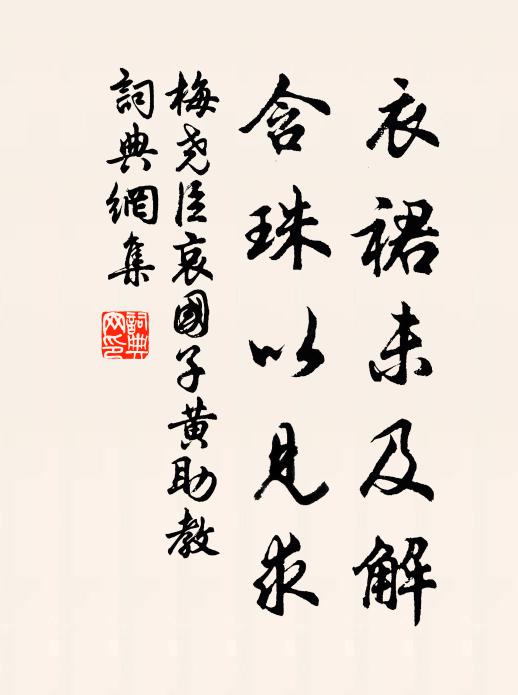 衣裙未及解
含珠以見求
梅堯臣哀國子黄助教
詞典網集
詞典網印